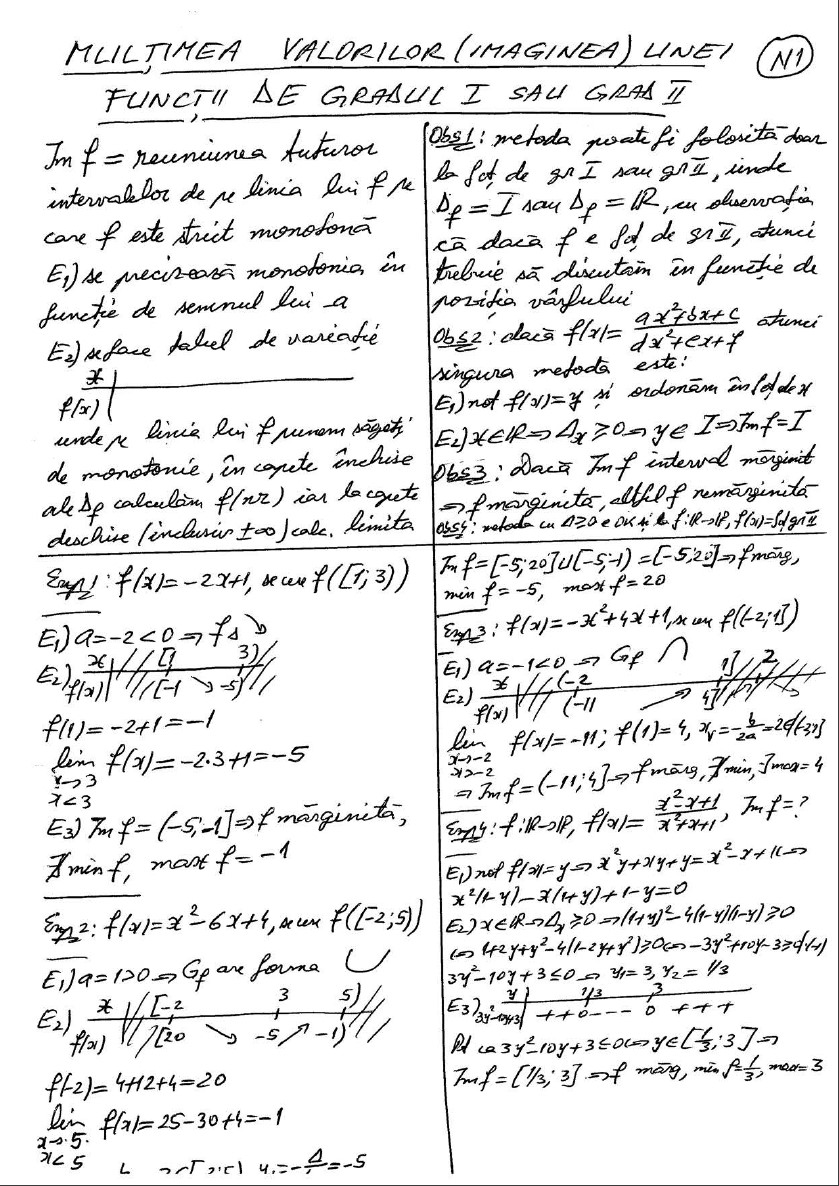 MULȚIMEA VALORILOR (IMAGINEA) UNEI
FUNCȚII DE GRADUL I SAU GRAD II
N1
Im f = reuniunea tuturor
intervalelor de pe linia lui f pe
care f este strict monotonă
E1) se precizează monotonia în
funcție de semnul lui a
E2) se face tabel de variație
x
f(x)
unde pe linia lui f punem săgeți
de monotonie, în capete închise
ale Df calculăm f(nr) iar la capete
deschise (inclusiv ±∞) calc. limita
Obs1: metoda poate fi folosită doar
la fcț. de gr I sau gr II, unde
Df = I sau Df = ℝ, cu observația
că dacă f e fcț de gr II, atunci
trebuie să discutăm în funcție de
poziția vârfului
Obs2: dacă f(x) = (ax²+bx+c)/(dx²+ex+f) atunci
singura metodă este:
E1) not f(x)=y și ordonăm în fcț de x
E2) x∈ℝ ⇒ Δx ≥ 0 ⇒ y ∈ I ⇒ Im f = I
Obs3: Dacă Im f interval mărginit
⇒ f mărginită, altfel f nemărginită
Obs4: metoda cu Δ≥0 e OK și la f:ℝ→ℝ, f(x)=fcț gr II
Exp1: f(x) = -2x+1, se cere f([1; 3))
E1) a = -2 < 0 ⇒ f s ↘
E2) x [1 3)
f(x) [-1 ↘ -5)
f(1) = -2+1 = -1
lim f(x) = -2·3+1 = -5
x→3
x<3
E3) Im f = (-5; -1] ⇒ f mărginită,
∄ min f, max f = -1
Exp2: f(x) = x²-6x+4, se cere f([-2; 5))
E1) a=1>0 ⇒ Gf are forma ∪
E2) x [-2 3 5)
f(x) [20 ↘ -5 ↗ -1)
f(-2) = 4+12+4 = 20
lim f(x) = 25-30+4 = -1
x→5
x<5
= -Δ/4 = -5
Im f = [-5; 20] ∪ [-5; -1) = [-5; 20] ⇒ f mărg,
min f = -5, max f = 20
Exp3: f(x) = -x²+4x+1, se cere f((-2; 1])
E1) a = -1 < 0 ⇒ Gf ∩
E2) x (-2 1] 2
f(x) (-11 ↗ 4]
lim f(x) = -11; f(1) = 4, xv = -b/2a = 2
x→-2
x>-2
⇒ Im f = (-11; 4] ⇒ f mărg, ∄ min, ∃ max = 4
Exp4: f:ℝ→ℝ, f(x) = (x²-x+1)/(x²+x+1), Im f = ?
E1) not f(x)=y ⇒ x²y+xy+y = x²-x+1 ⇔
x²(1-y) - x(1+y) + 1-y = 0
E2) x∈ℝ ⇒ Δx ≥ 0 ⇒ (1+y)² - 4(1-y)(1-y) ≥ 0
⇔ 1+2y+y² - 4(1-2y+y²) ≥ 0 ⇔ -3y²+10y-3 ≥ 0 |·(-1)
3y²-10y+3 ≤ 0 ⇒ y1 = 3, y2 = 1/3
E3) y 1/3 3
3y²-10y+3 + + 0 - - - 0 + + +
Pt ca 3y²-10y+3 ≤ 0 ⇔ y ∈ [1/3; 3] ⇒
Im f = [1/3; 3] ⇒ f mărg, min f = 1/3, max = 3